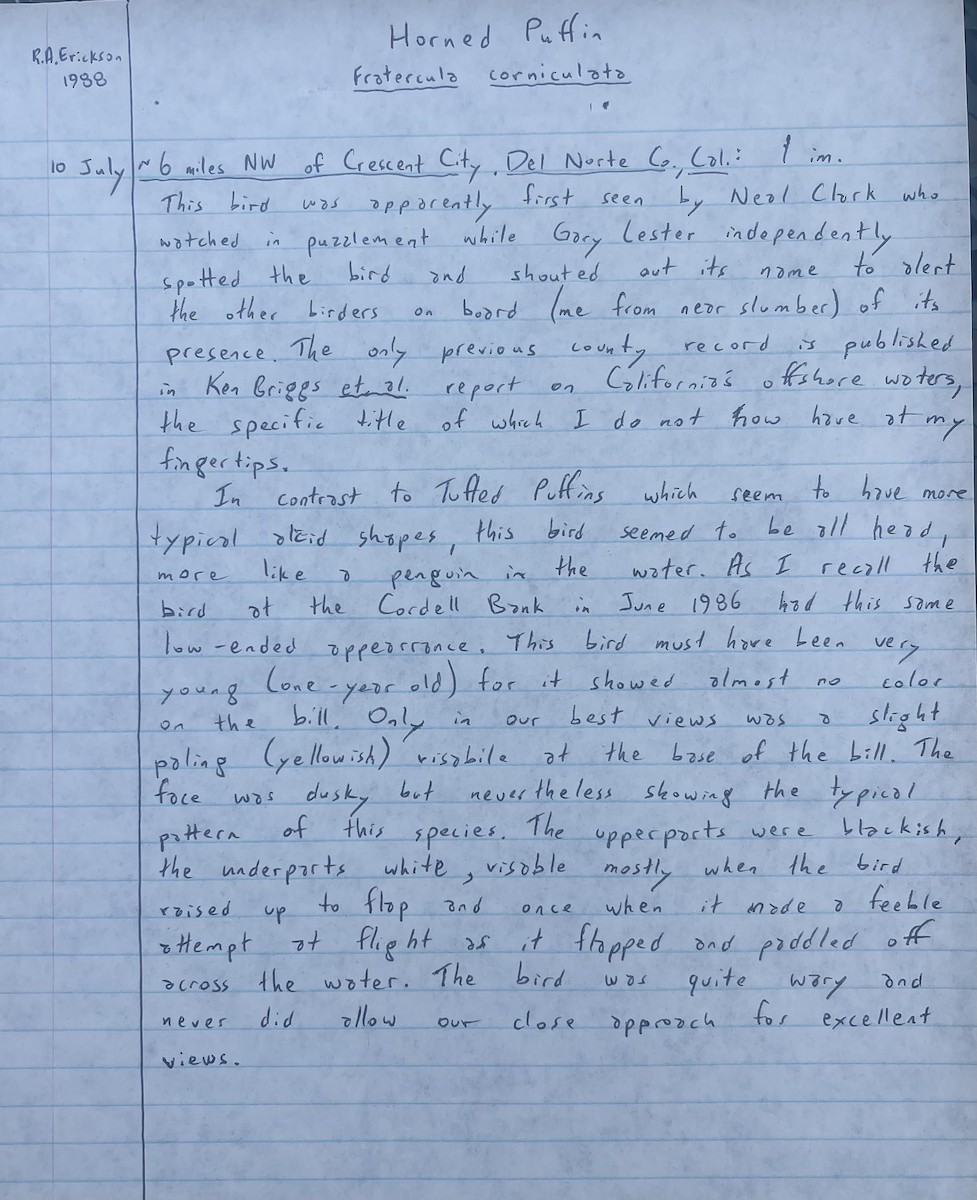 Horned Puffin
R.A. Erickson
1988
Fratercula corniculata
10 July ~6 miles NW of Crescent City, Del Norte Co., Cal.: 1 im.
This bird was apparently first seen by Neal Clark who
watched in puzzlement while Gary Lester independently
spotted the bird and shouted out its name to alert
the other birders on board (me from near slumber) of its
presence. The only previous county record is published
in Ken Briggs et al. report on California's offshore waters,
the specific title of which I do not have at my
fingertips.
In contrast to Tufted Puffins which seem to have more
typical alcid shapes, this bird seemed to be all head,
more like a penguin in the water. As I recall the
bird at the Cordell Bank in June 1986 had this same
low-ended appearrance. This bird must have been very
young (one-year old) for it showed almost no color
on the bill. Only in our best views was a slight
paling (yellowish) visabile at the base of the bill. The
face was dusky but nevertheless showing the typical
pattern of this species. The upperparts were blackish,
the underparts white, visable mostly when the bird
raised up to flap and once when it made a feeble
attempt at flight as it flapped and paddled off
across the water. The bird was quite wary and
never did allow our close approach for excellent
views.